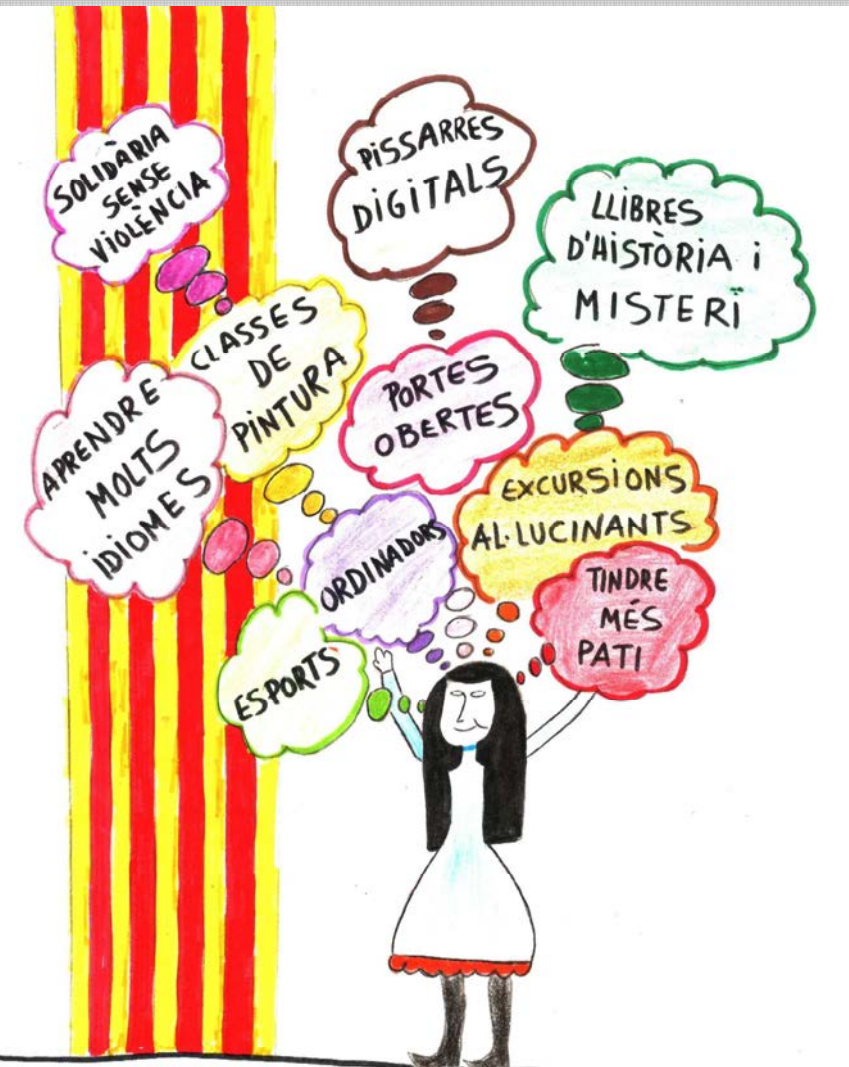 SOLIDÀRIA
SENSE
VIOLÈNCIA
PISSARRES
DIGITALS
LLIBRES
D'HISTÒRIA i
MISTERI
CLASSES
DE
PINTURA
PORTES
OBERTES
APRENDRE
MOLTS
IDIOMES
EXCURSIONS
AL·LUCINANTS
ORDINADORS
TINDRE
MÉS
PATI
ESPORTS